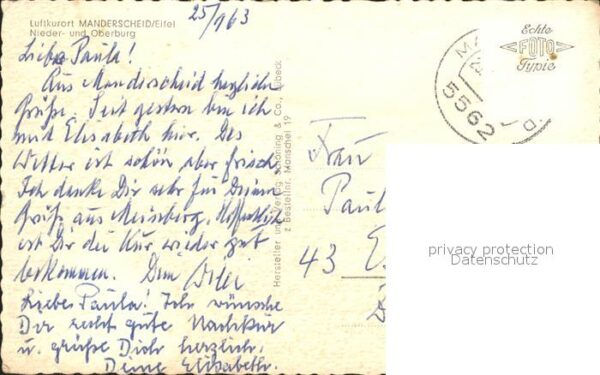 Luftkurort MANDERSCHEID/Eifel
Nieder- und Oberburg
25/ 1963
Liebe Paula!
Aus Manderscheid herzliche
Grüße. Seit gestern bin ich
mit Elisabeth hier. Das
Wetter ist schön aber frisch
Ich danke Dir sehr für Deinen
Gruß aus. Hoffentlich
ist Dir die Kur wieder gut
bekommen. Dein
Liebe Paula! Ich wünsche
Dir recht gute Nachkur
u. grüße Dich herzlich.
Deine Elisabeth.
Hersteller und Verlag Schöning & Co., Lübeck
Bestellnr. Manschei 19
Echte
FOTO
Typie
MA
5562
Frau
Paul
43 E
privacy protection
Datenschutz